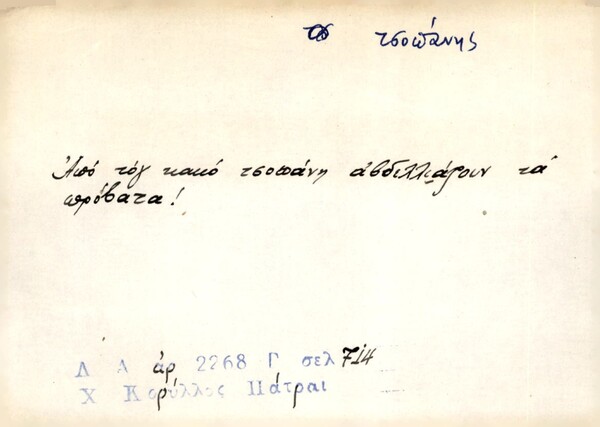 τσοπάνης
Ἀπό τόγ κακό τσοπάνη ἀβδελλιάζουν τά
πρόβατα!
Λ Α ἀρ 2268 Γ σελ 714
Χ Κορύλλος Πάτραι